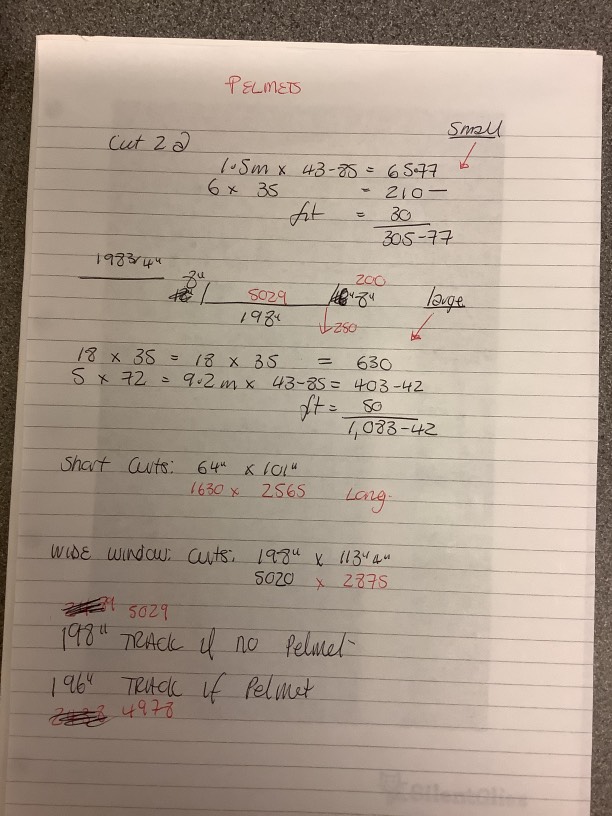 PELMETS
Small
Cut 2 @
1.5m x 43-85 = 65-77
6 x 35 = 210 —
fit = 30
305-77
198 3/4"
8" 5029 8" 200
198" 250
large
18 x 35 = 18 x 35 = 630
5 x 72 = 9.2m x 43-85 = 403-42
ft = 50
1,083-42
Short Cuts: 64" x 101"
1630 x 2565 Long.
WIDE WINDOW: Cuts: 198" x 113"
5020 x 2875
5029
198" TRACK if no Pelmet
196" TRACK if Pelmet
4978
SilentGliss